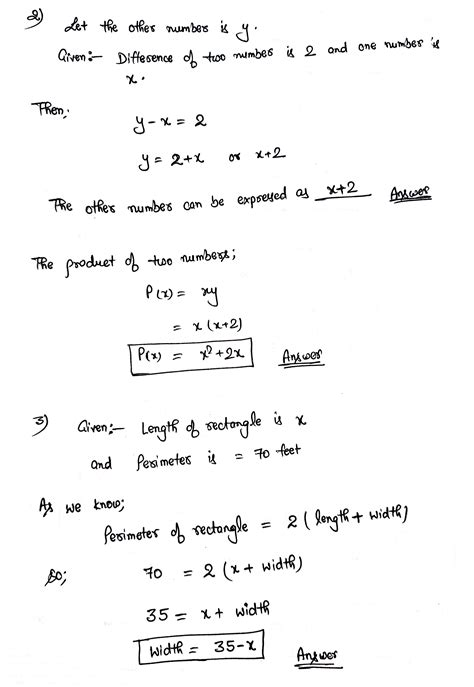 2) Let the other number is y.
Given:- Difference of two number is 2 and one number is
x.
Then;
y-x = 2
y = 2+x or x+2
The other number can be expressed as x+2 Answer
The product of two numbers;
P(x) = xy
= x(x+2)
P(x) = x²+2x Answer
3) Given:- Length of rectangle is x
and Perimeter is = 70 feet
As we know;
Perimeter of rectangle = 2(length + width)
So; 70 = 2(x + width)
35 = x + width
width = 35-x Answer